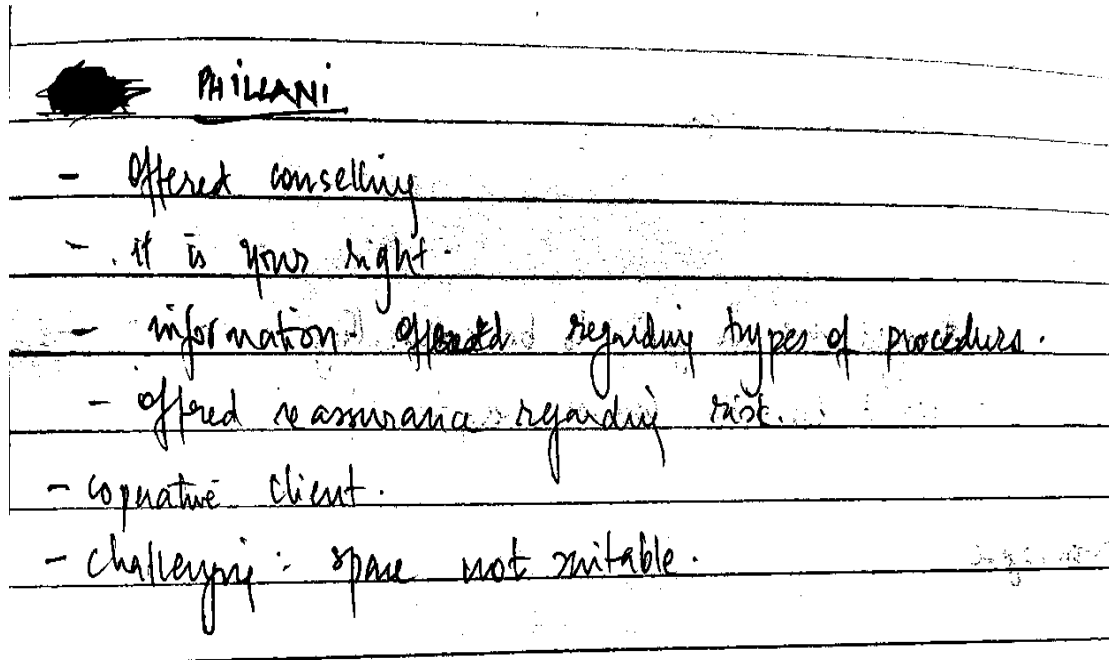 PHILLANI
- Offered conselling
- it is your right.
- information offered regarding types of procedures.
- offred reassurance regarding risk.
- coperative client.
- challenging: space not suitable.